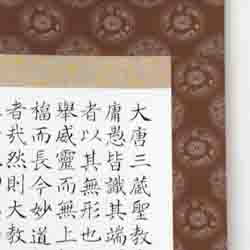 大唐三蔵聖教
庸愚皆識其端
者以其無形也
擧威靈而無上
福而長今妙道
者哉然則大教